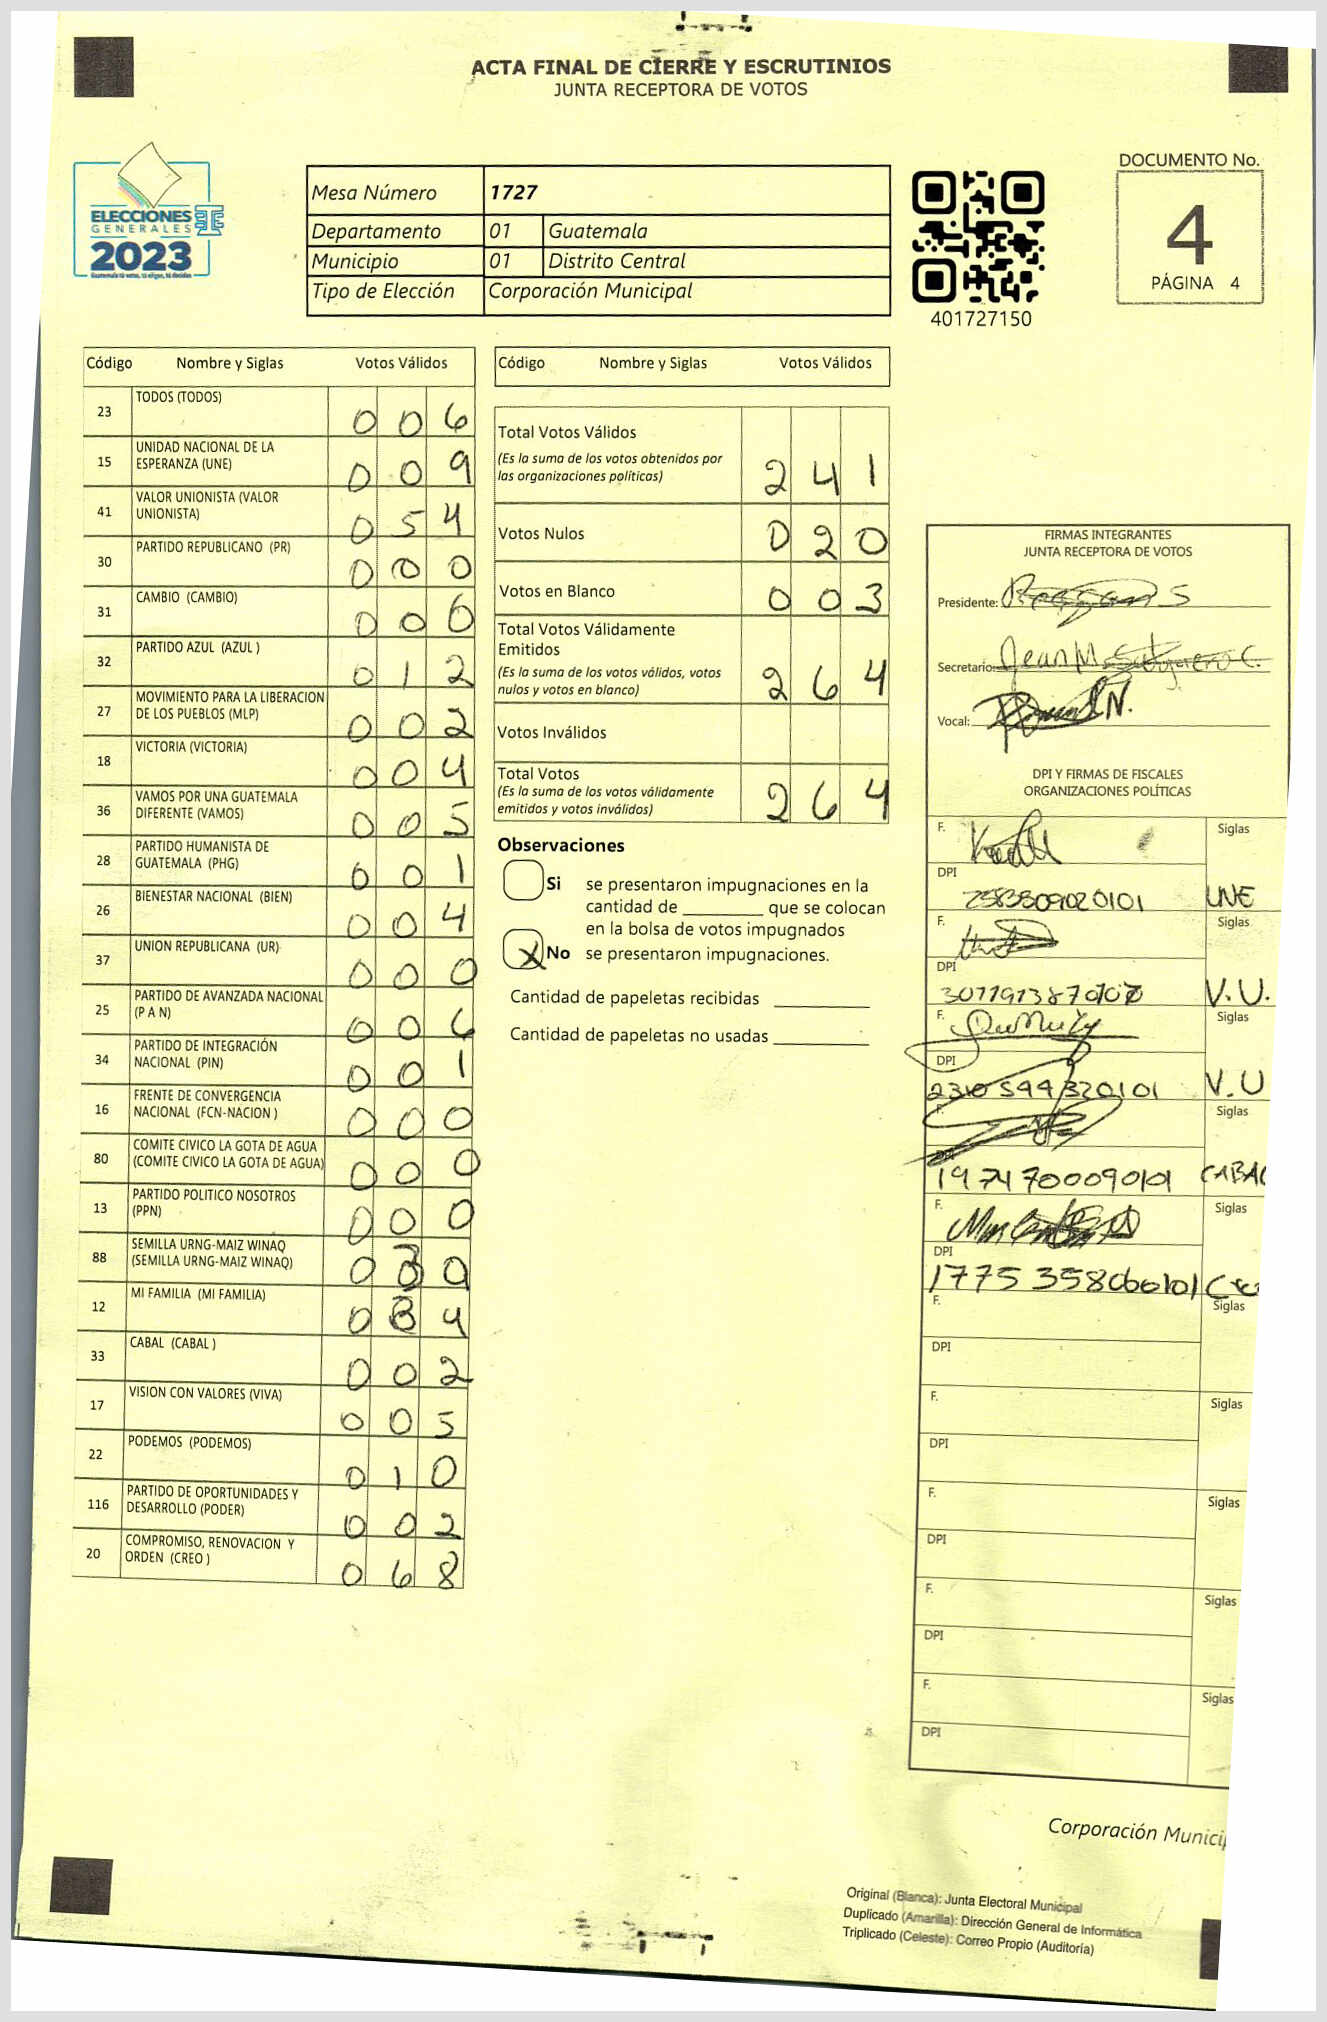 ACTA FINAL DE CIERRE Y ESCRUTINIOS
JUNTA RECEPTORA DE VOTOS
ELECCIONES
GENERALES
2023
Mesa Número 1727
Departamento 01 Guatemala
Municipio 01 Distrito Central
Tipo de Elección Corporación Municipal
401727150
DOCUMENTO No.
4
PÁGINA 4
Código Nombre y Siglas Votos Válidos
23 TODOS (TODOS) 0 0 6
15 UNIDAD NACIONAL DE LA
ESPERANZA (UNE) 0 0 9
41 VALOR UNIONISTA (VALOR
UNIONISTA) 0 5 4
30 PARTIDO REPUBLICANO (PR) 0 0 0
31 CAMBIO (CAMBIO) 0 0 6
32 PARTIDO AZUL (AZUL ) 0 1 2
27 MOVIMIENTO PARA LA LIBERACION
DE LOS PUEBLOS (MLP) 0 0 2
18 VICTORIA (VICTORIA) 0 0 4
36 VAMOS POR UNA GUATEMALA
DIFERENTE (VAMOS) 0 0 5
28 PARTIDO HUMANISTA DE
GUATEMALA (PHG) 0 0 1
26 BIENESTAR NACIONAL (BIEN) 0 0 4
37 UNION REPUBLICANA (UR) 0 0 0
25 PARTIDO DE AVANZADA NACIONAL
(P A N) 0 0 6
34 PARTIDO DE INTEGRACIÓN
NACIONAL (PIN) 0 0 1
16 FRENTE DE CONVERGENCIA
NACIONAL (FCN-NACION ) 0 0 0
80 COMITE CIVICO LA GOTA DE AGUA
(COMITE CIVICO LA GOTA DE AGUA) 0 0 0
13 PARTIDO POLITICO NOSOTROS
(PPN) 0 0 0
88 SEMILLA URNG-MAIZ WINAQ
(SEMILLA URNG-MAIZ WINAQ) 0
12 MI FAMILIA (MI FAMILIA) 0 4
33 CABAL (CABAL ) 0 0 2
17 VISION CON VALORES (VIVA) 0 0 5
22 PODEMOS (PODEMOS) 0 1 0
116 PARTIDO DE OPORTUNIDADES Y
DESARROLLO (PODER) 0 0 2
20 COMPROMISO, RENOVACION Y
ORDEN (CREO ) 0 6 8
Código Nombre y Siglas Votos Válidos
Total Votos Válidos
(Es la suma de los votos obtenidos por
las organizaciones políticas) 2 4 1
Votos Nulos 0 2 0
Votos en Blanco 0 0 3
Total Votos Válidamente
Emitidos
(Es la suma de los votos válidos, votos
nulos y votos en blanco) 2 6 4
Votos Inválidos
Total Votos
(Es la suma de los votos válidamente
emitidos y votos inválidos) 2 6 4
Observaciones
Si se presentaron impugnaciones en la
cantidad de ________ que se colocan
en la bolsa de votos impugnados
X No se presentaron impugnaciones.
Cantidad de papeletas recibidas _________
Cantidad de papeletas no usadas _________
FIRMAS INTEGRANTES
JUNTA RECEPTORA DE VOTOS
Presidente:
Secretario: Jean M.
Vocal:
DPI Y FIRMAS DE FISCALES
ORGANIZACIONES POLÍTICAS
F. Siglas
DPI
UNE
F. Siglas
DPI
V.U.
F. Siglas
DPI
2310 594320101 V.U
F. Siglas
DPI
1974700090101 CABAL
F. Siglas
DPI
1775 358060101
F. Siglas
DPI
F. Siglas
DPI
F. Siglas
DPI
F. Siglas
DPI
F. Siglas
DPI
Corporación Municip
Original (Blanca): Junta Electoral Municipal
Duplicado (Amarilla): Dirección General de Informática
Triplicado (Celeste): Correo Propio (Auditoría)